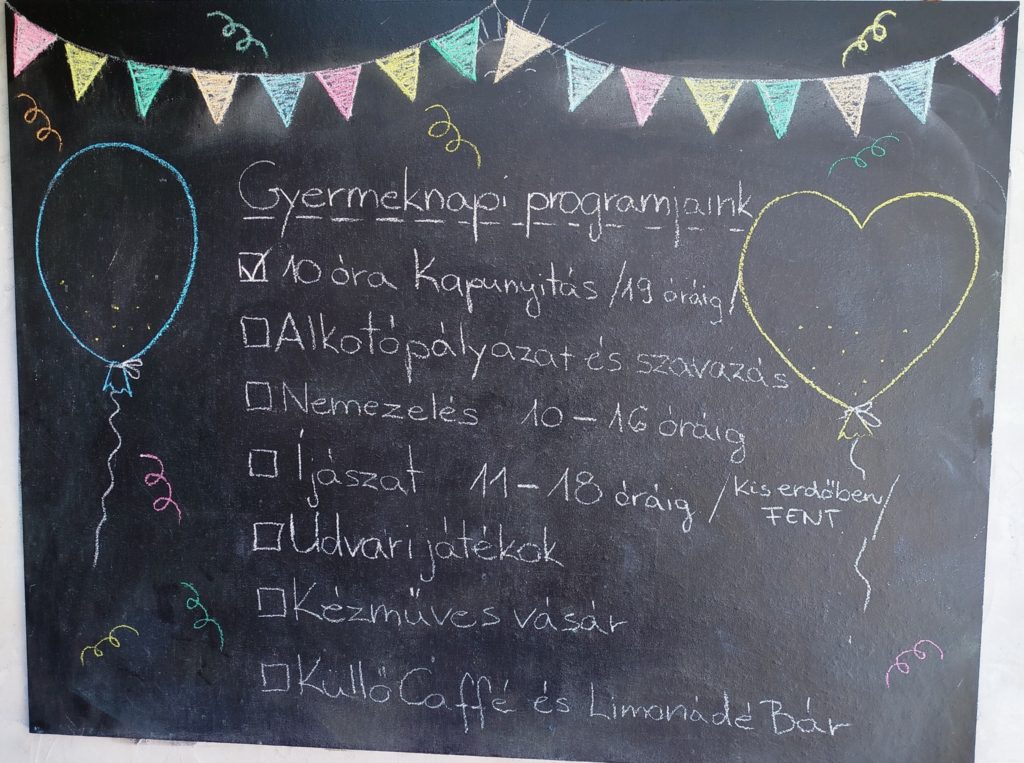 Gyermeknapi programjaink
10 óra Kapunyitás /19 óráig/
Alkotópályázat és szavazás
Nemezelés 10-16 óráig
Íjászat 11-18 óráig /Kis erdőben FENT/
Udvari játékok
Kézműves vásár
Küllő Cáffé és Limonádé Bár